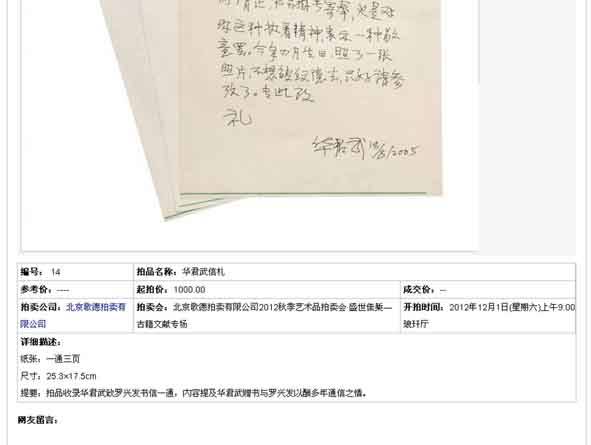 你这种执着精神,表示一种敬
意罢。今年四月生日,照了一张
照片,不想
改了。专此致
礼
华君武 /2005
编号: 14 拍品名称:华君武信札
参考价:---- 起拍价:1000.00 成交价:--
拍卖公司:北京歌德拍卖有限公司 拍卖会:北京歌德拍卖有限公司2012秋季艺术品拍卖会 盛世佳篥—古籍文献专场 开拍时间:2012年12月1日(星期六)上午9:00 琅玕厅
详细描述:
纸张:一通三页
尺寸:25.3×17.5cm
提要:拍品收录华君武致罗兴发书信一通,内容提及华君武赠书与罗兴发以酬多年通信之情。
网友留言: